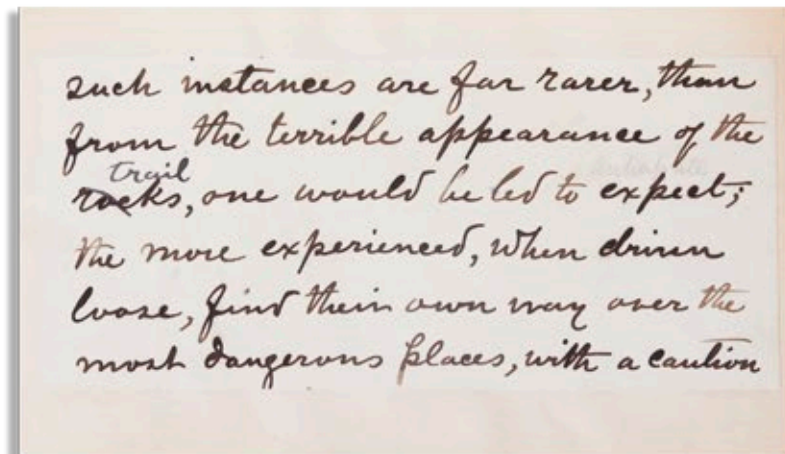 such instances are far rarer, than
from the terrible appearance of the
trail
rocks, one would be led to expect;
the more experienced, when driven
loose, find their own way over the
most dangerous places, with a caution